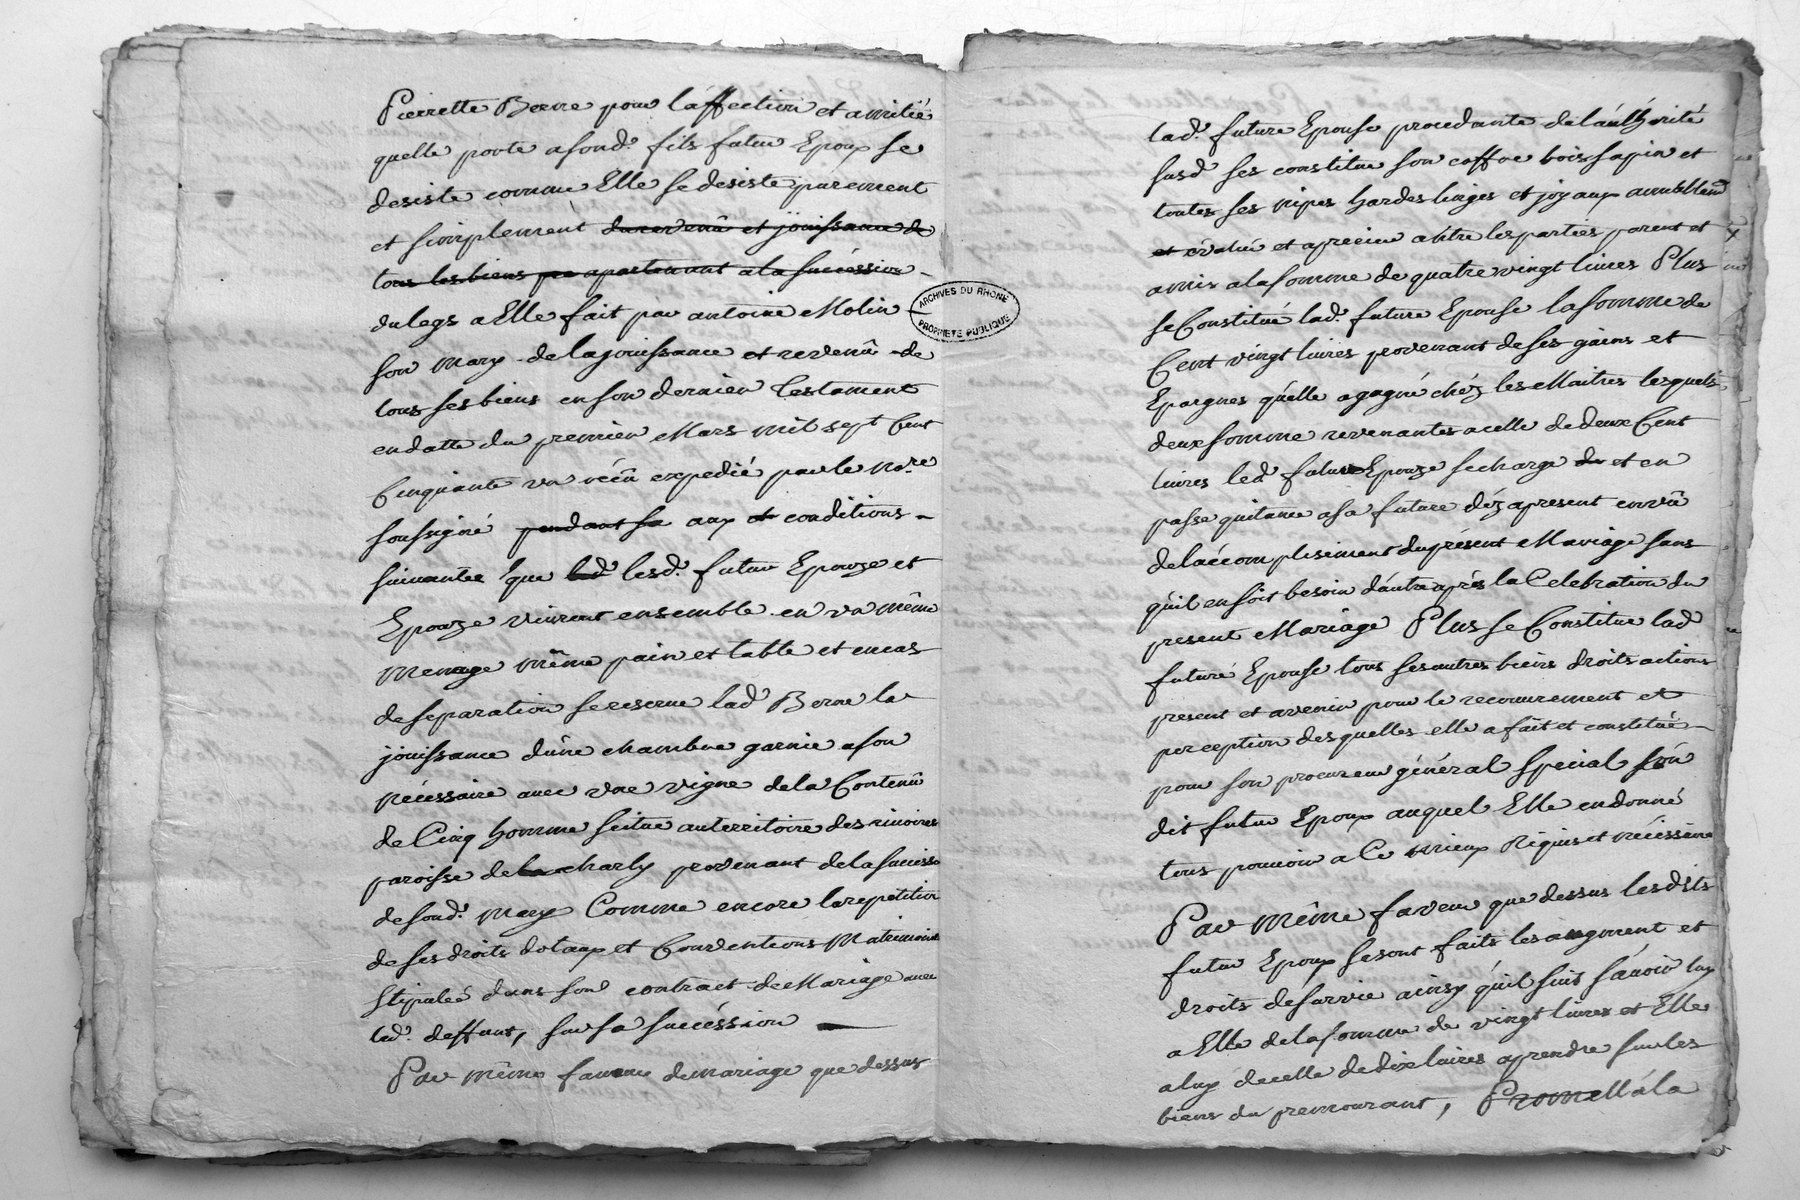 Pierrette Berne pour l'affection et amitié
quelle porte a sond.t fils futur Epoux se
desiste comme Elle se desiste purement
et simplement du revenû et jouissance de
tous les biens apartenant a la succession
du legs a Elle fait par antoine Molin
son mary de la jouissance et revenû de
tous ses biens en son dernier testament
en datte du premier Mars mil sept Cent
Cinquante un recû expedié par le No.re
soussigné pendant sa aux conditions
suivantes que lesd.t futur Epouze et
Epouze vivront ensemble en un même
menage même pain et table et encas
de separation se reserve lad.t Berne la
jouissance d'une chambre garnie a son
nécéssaire avec une vigne de la Contenû
de Cinq homme scitue au territoire des
paroisse de charly provenant de la success
de sond.t mary Comme encore la repetition
de ses droits dotaux et Conventions Matrimonia
stipuleé dans son contract de Mariage avec
led.t deffunt, sur sa succéssion
Par même faveur de mariage que dessus
ARCHIVES DU RHONE
PROPRIETE PUBLIQUE
lad.t future Epouse procedante de l'authorité
susd ses constitue son coffre bois sapin et
toutes ses nipes hardes linges et joyaux
et évalué et aprecieu entre les parties parent et
amis a la somme de quatre vingt livres Plus
se Constitué lad.t future Epouse la somme de
Cent vingt livres provenant de ses gains et
Epargnes qu'elle a gagné chéz les Maitres lesquels
deux somme revenantes a celle de deux Cent
livres led futur Epouze se charge et en
passe quitance a sa future déz apresent en vû
de laccomplisiment du présent Mariage sans
qu'il en soit besoin d'autre aprés la Celebration du
present Mariage Plus se Constitue lad
futuré Epouse tous ses autres biens droits actions
present et avenir pour le recouvrement et
perception desquelles elle a fait et constitué
pour son procureur général spécial són
dit futur Epoux auquel Elle en donné
tous pouvoir a Ce mieux Réquis et nécéssaire
Par même faveur que dessus lesdits
futur Epoux se sont faits les augment et
droits de survie ainsy qu'il suit sçavoir luy
a Elle de la somme de vingt livres et Elle
a luy de celle de dix livres aprendre sur les
biens du premourant, Promett a la